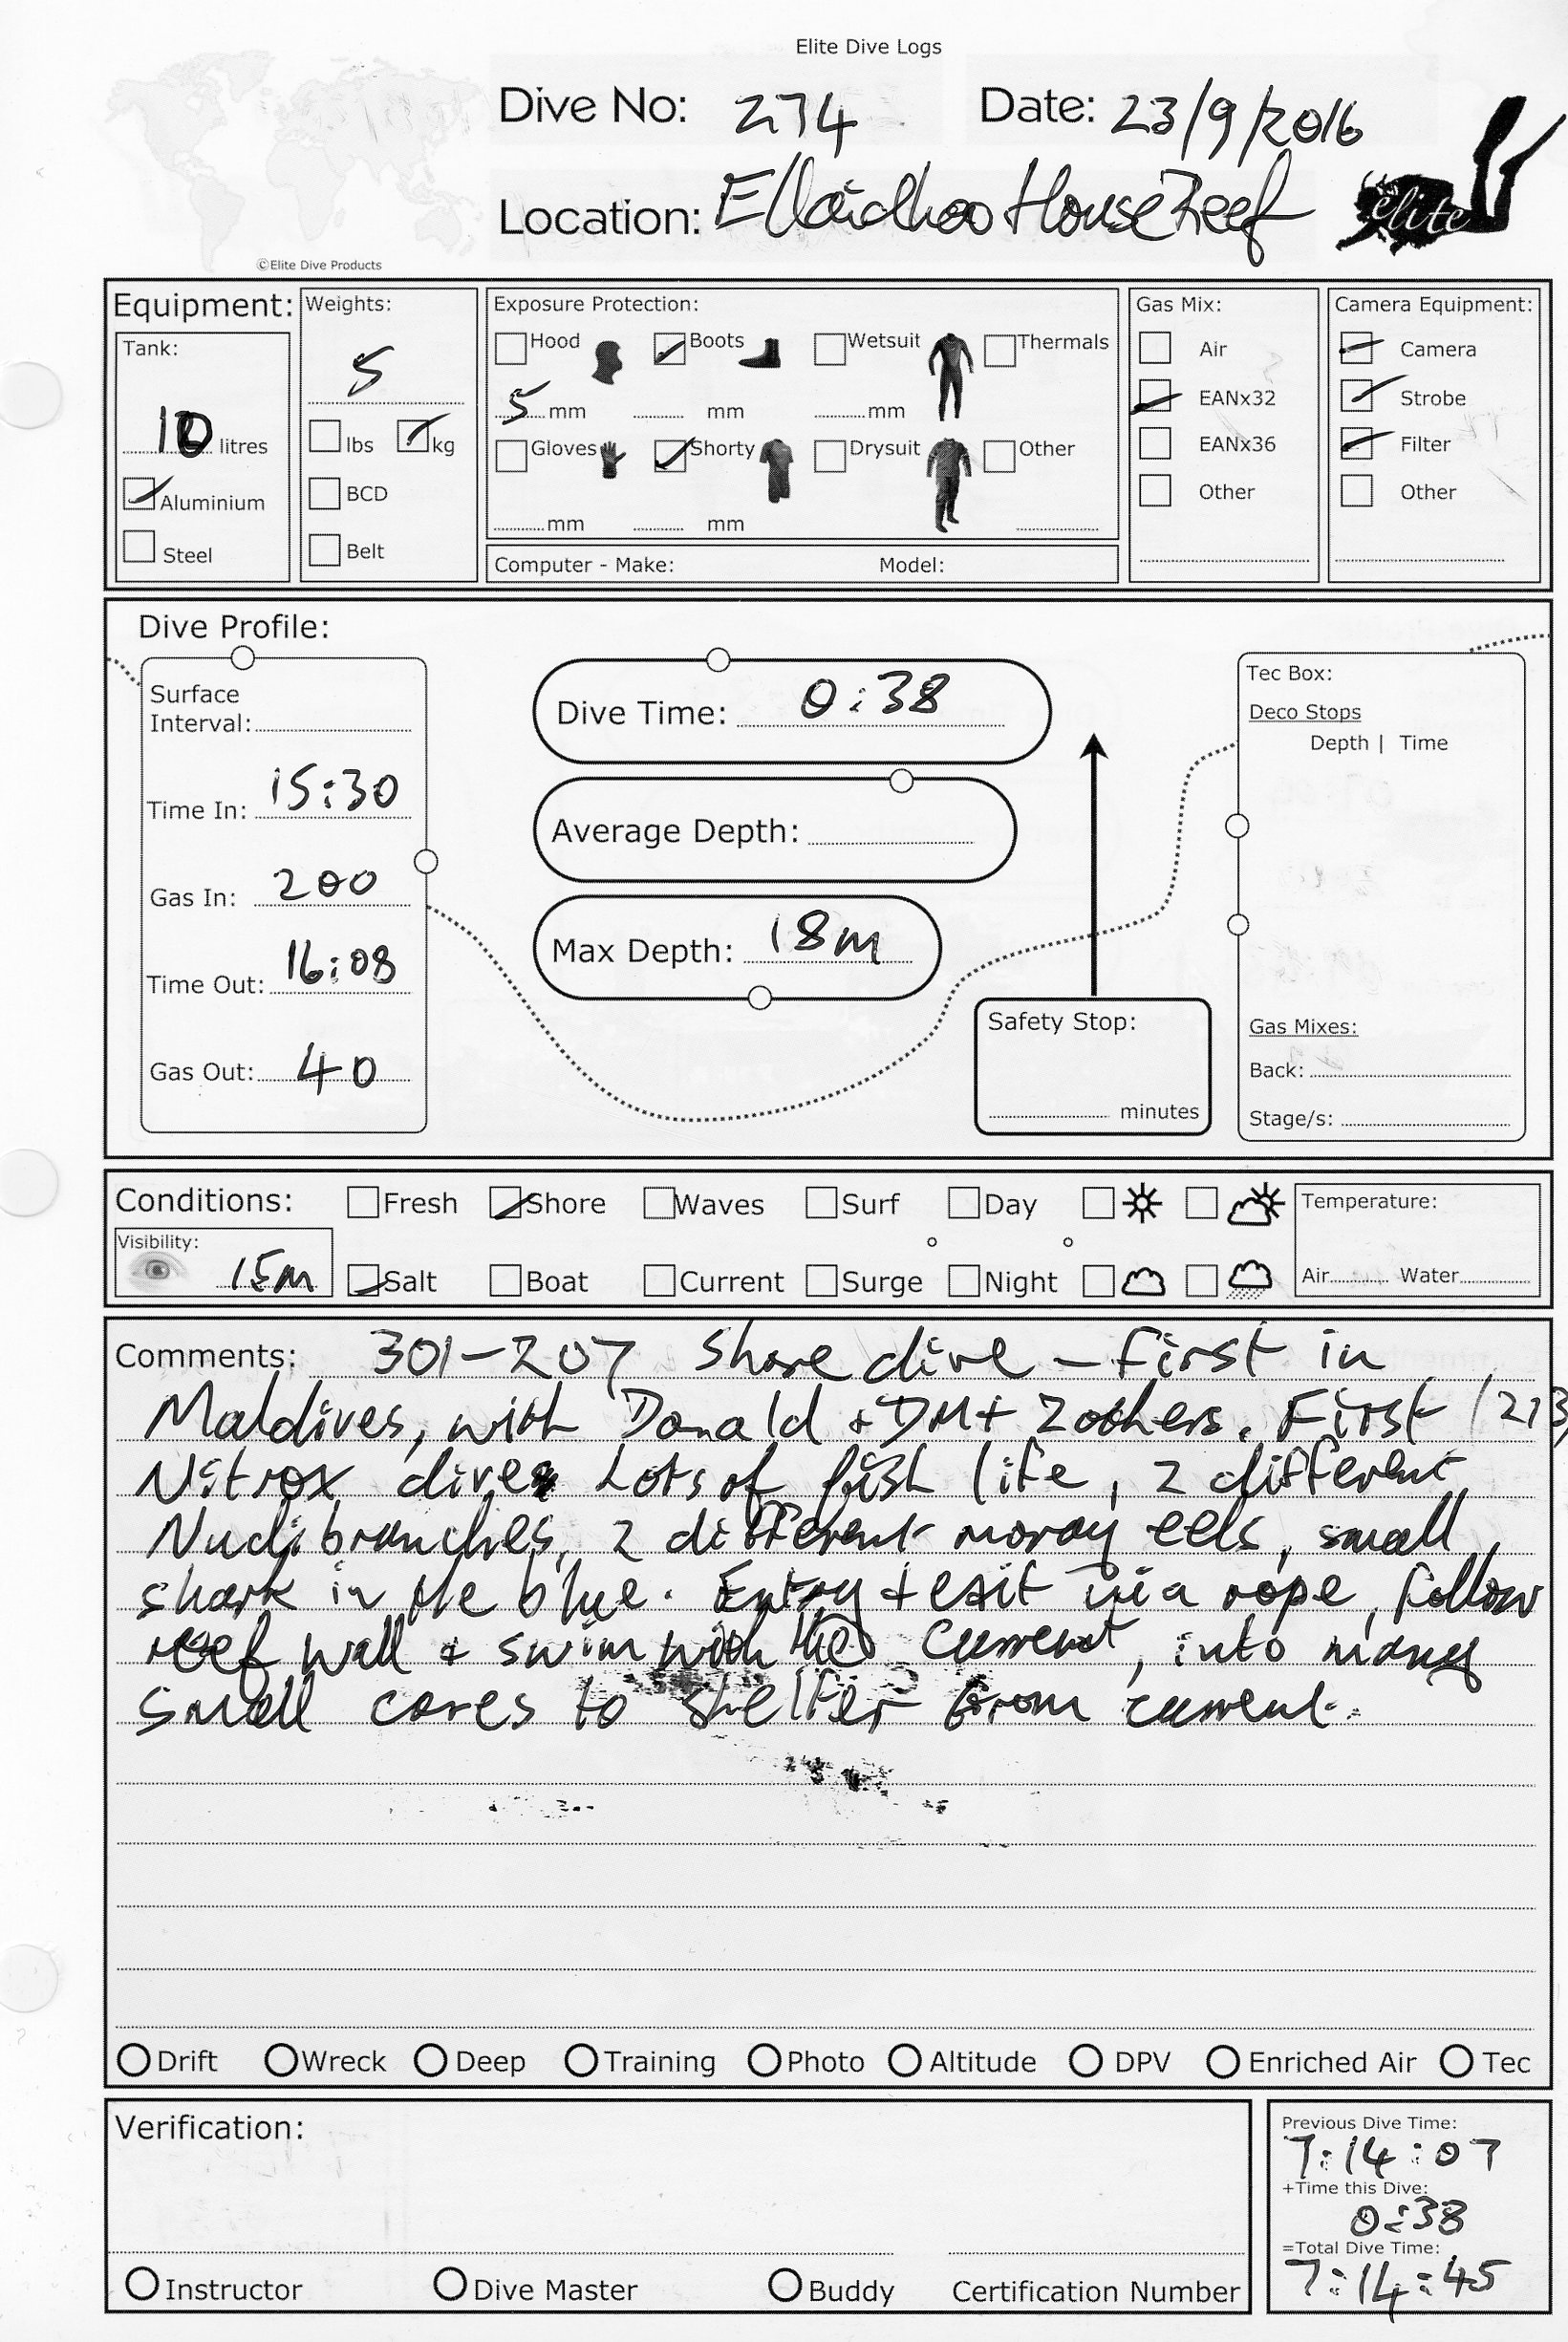 Elite Dive Logs
Dive No: 274 Date: 23/9/2016
Location: Ellaidhoo House Reef
elite
©Elite Dive Products
Equipment: Weights: Exposure Protection: Gas Mix: Camera Equipment:
Tank: 5 Hood Boots Wetsuit Thermals Air Camera
10 litres 5 mm mm mm EANx32 Strobe
lbs kg Gloves Shorty Drysuit Other EANx36 Filter
Aluminium BCD Other Other
Steel Belt mm mm
Computer - Make: Model:
Dive Profile:
Surface
Interval:
Time In: 15:30
Gas In: 200
Time Out: 16:08
Gas Out: 40
Dive Time: 0:38
Average Depth:
Max Depth: 18m
Safety Stop:
minutes
Tec Box:
Deco Stops
Depth | Time
Gas Mixes:
Back:
Stage/s:
Conditions: Fresh Shore Waves Surf Day Temperature:
Visibility: 15m Salt Boat Current Surge Night Air Water
Comments: 301-207 Shore dive - First in
Maldives, with Donald + DM + 2 others. First /213
Nitrox dive. Lots of fish life, 2 different
Nudibranches, 2 different moray eels, small
shark in the blue. Entry + exit via rope, follow
reef wall + swim with the current, into many
small caves to shelter from current.
Drift Wreck Deep Training Photo Altitude DPV Enriched Air Tec
Verification:
Instructor Dive Master Buddy Certification Number
Previous Dive Time:
7:14:07
+Time this Dive:
0:38
=Total Dive Time:
7:14:45